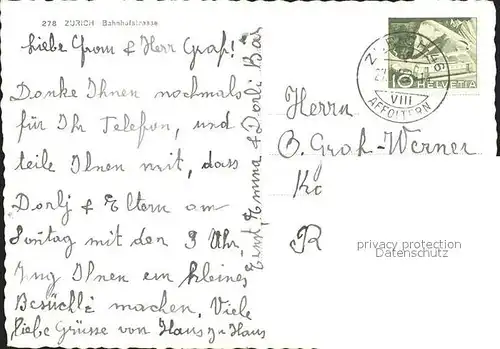 278 ZÜRICH Bahnhofstrasse
Liebe Frau & Herr Graf!
Danke Ihnen nochmals
für Ihr Telefon, und
teile Ihnen mit, dass
Dorly & Eltern am
Sontag mit den 9 Uhr
Zug Ihnen ein kleines
Besüchli machen. Viele
liebe Grüsse von Haus zu Haus
Ernst, Emma & Dorli
10
HELVETIA
VIII
AFFOLTERN
Herrn
O. Graf-Werner
privacy protection
Datenschutz